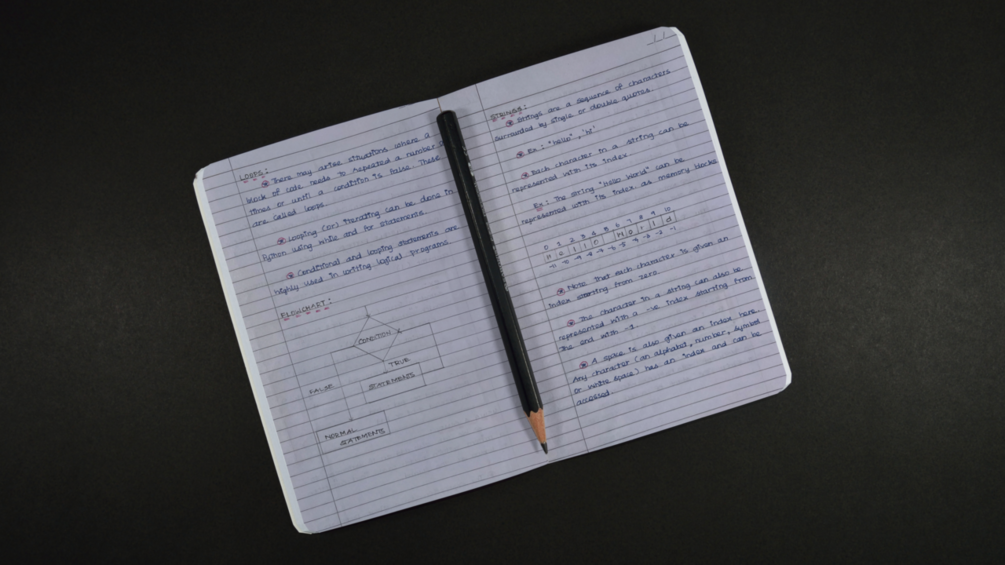 LOOPS:
There may arise situations where a
block of code needs to repeated a number
times or until a condition is false. These
are called loops.
Looping (or) iterating can be done in
Python using while and for statements.
Conditional and looping statements are
highly used in writing logical programs.
FLOWCHART:
CONDITION
TRUE
FALSE
STATEMENTS
NORMAL
STATEMENTS
STRINGS:
Strings are a sequence of characters
surrounded by single or double quotes.
Ex: "hello", 'hi'
Each character in a string can be
represented with its index.
Ex: The string "hello World" can be
represented with its index as memory blocks
0 1 2 3 4 5 6 7 8 9 10
-11 -10 -9 -8 -7 -6 -5 -4 -3 -2 -1
Note that each character is given an
index starting from zero.
The character in a string can also be
represented with a -ve index starting from
the end with -1.
A space is also given an index here.
Any character (an alphabet, number, symbol
or white space) has an index and can be
accessed.